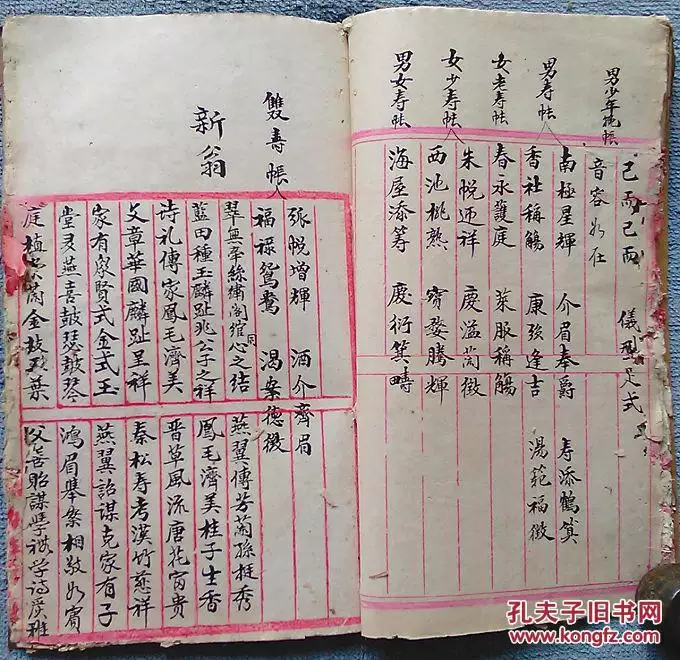 男少年晚帐
已而已而 儀型足式
音容如在
男寿帐
南極星輝 介眉奉爵 寿添鶴算
香社称觴 康强逢吉 湯範福徵
女老寿帐
春永護庭 萊服稱觴
女少寿帐
朱帨迎祥 慶溢蘭徵
西池桃熟 寶婺騰輝
男女寿帐
海屋添筹 慶衍箕疇
雙寿帳
弧帨增輝 酒介齊眉
福禄鴛鴦 鴻案德徵
新翁
翠無牵絲繡阁绾同心之结 燕翼傳芳蘭孫挺秀
藍田種玉麟趾兆公子之祥 鳳毛濟美桂子生香
诗礼傳家鳳毛濟美 晋草風流唐花富贵
文章華國麟趾呈祥 秦松寿考漢竹慈祥
家有家賢式金式玉 燕翼詒謀克家有子
堂多燕喜鼓瑟鼓琴 鴻眉舉案相敬如賓
庭植 蘭金枝玉葉 父 貽謀學禮学诗
孔夫子旧书网
www.kongfz.com